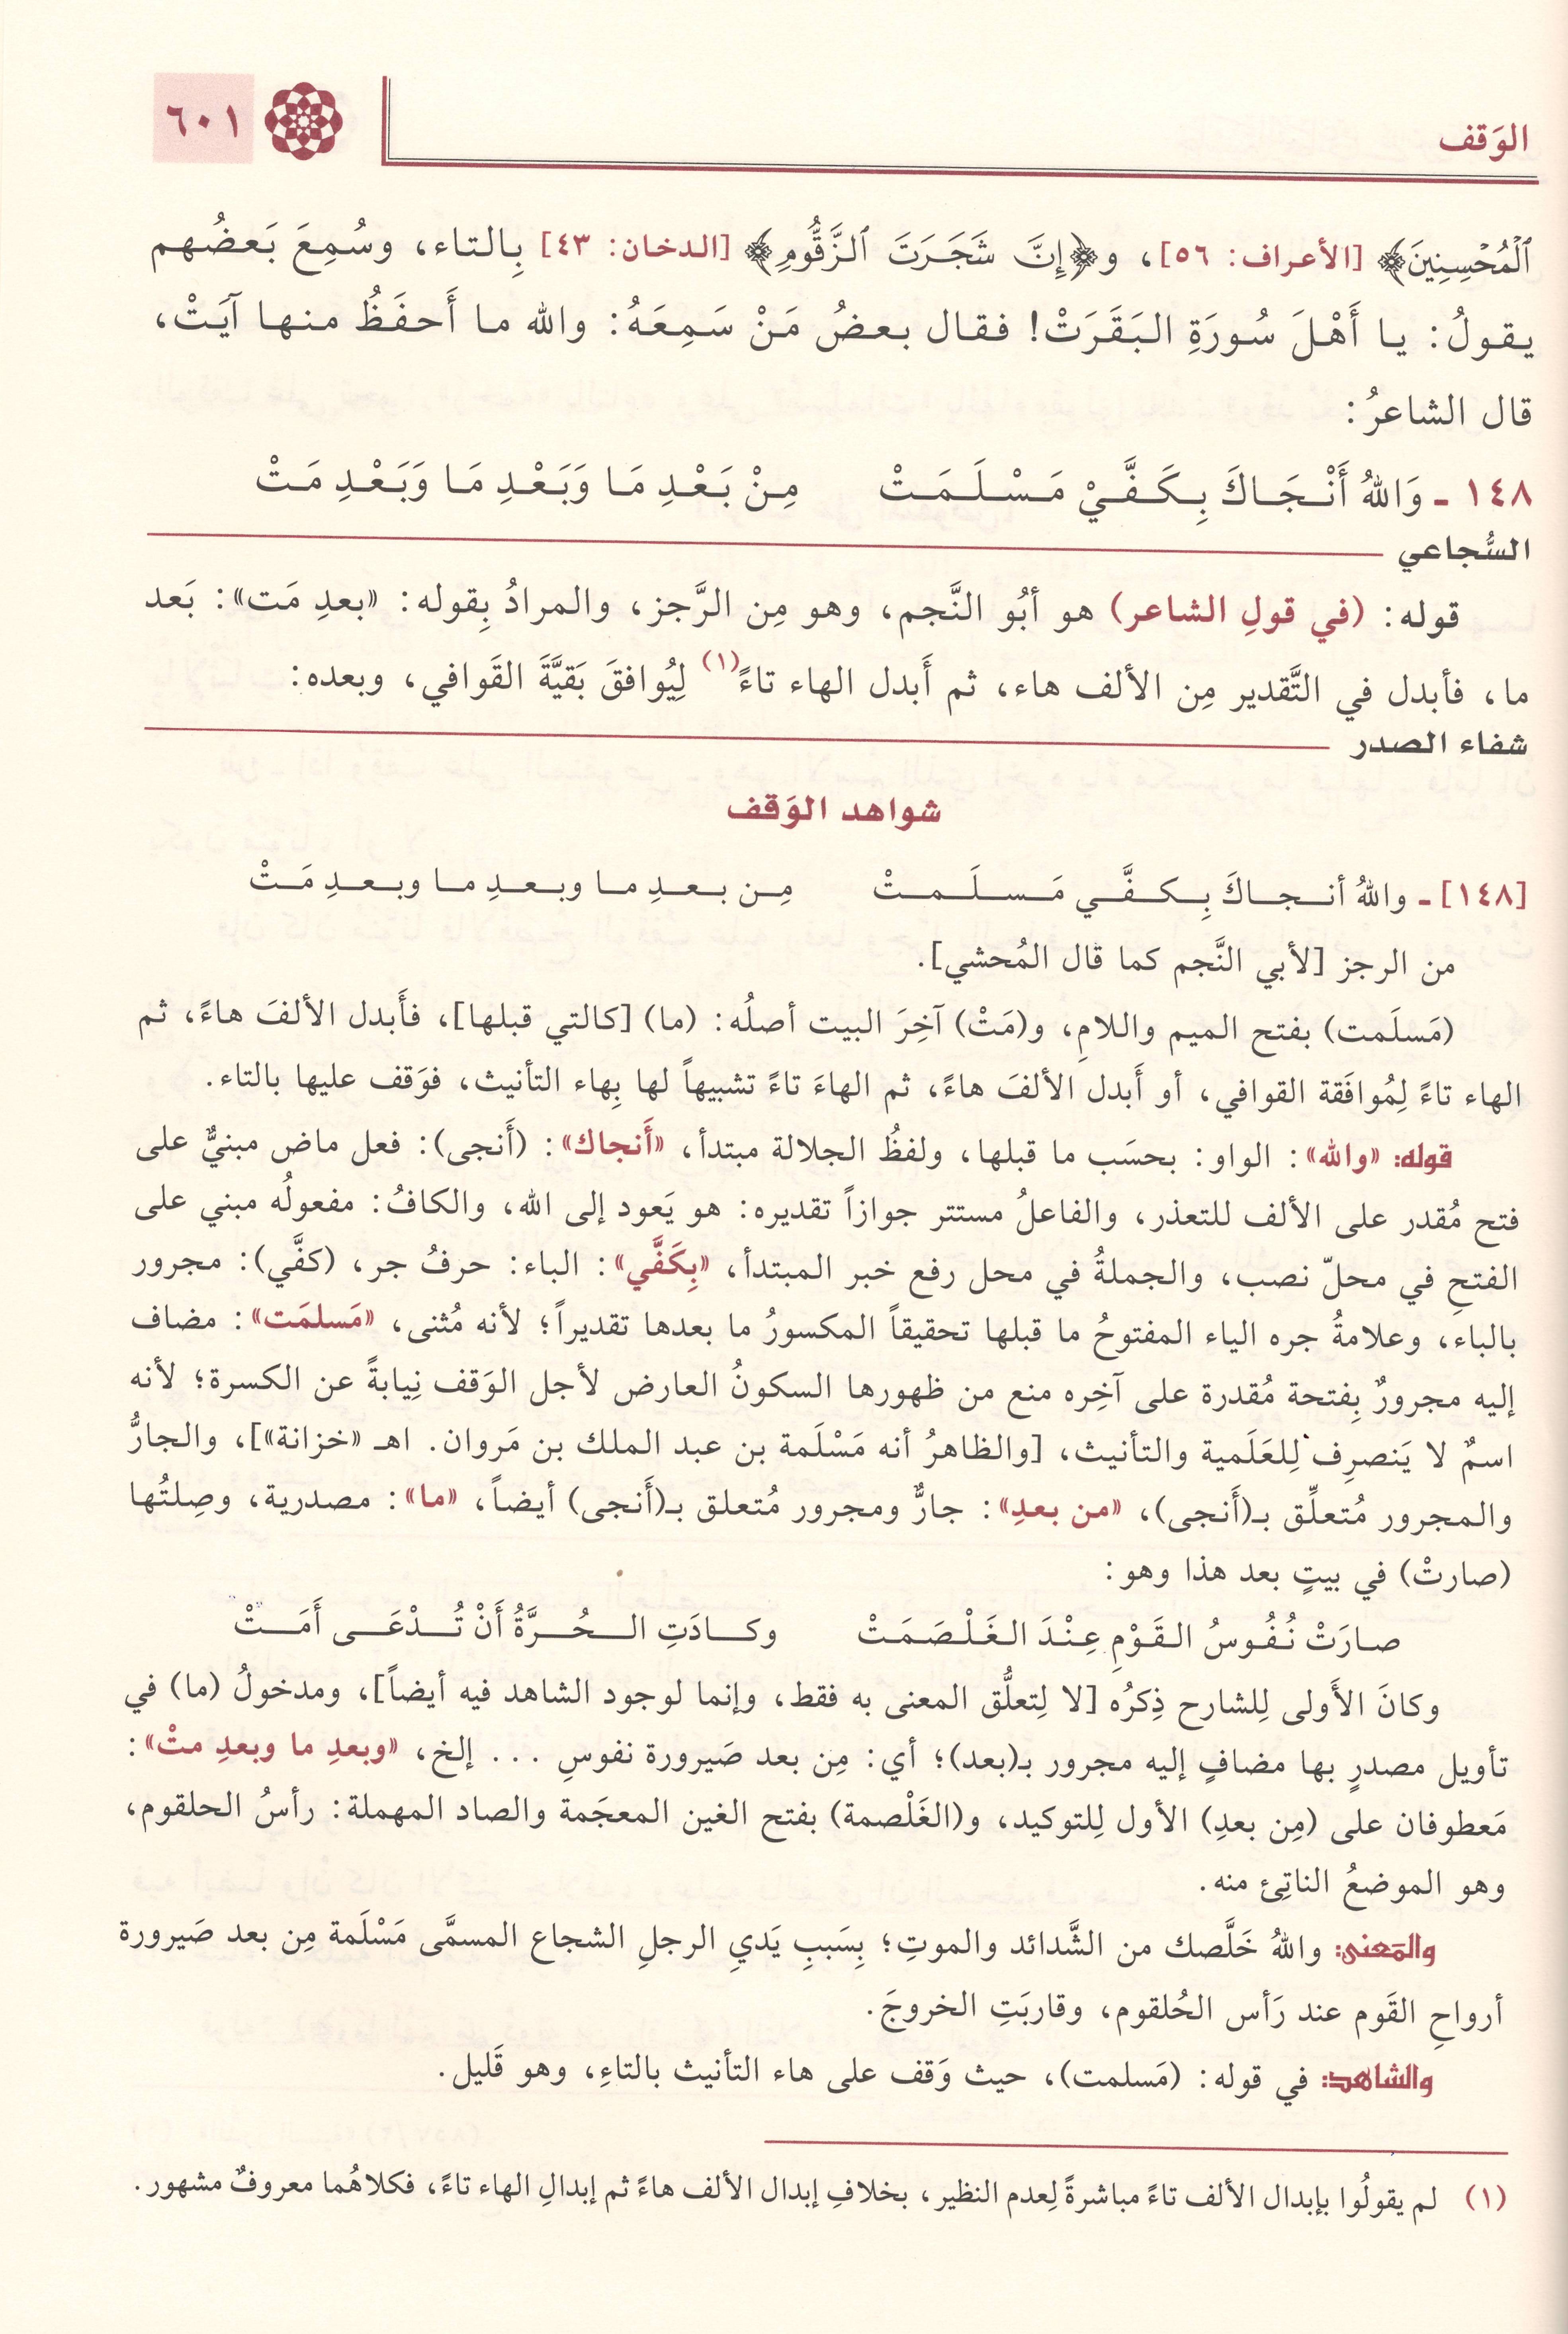 الوَقف
٦٠١
ٱلْمُحْسِنِينَ﴾ [الأعراف: ٥٦]، و﴿إِنَّ شَجَرَتَ ٱلزَّقُّومِ﴾ [الدخان: ٤٣] بِالتاء، وسُمِعَ بَعضُهم
يقولُ: يا أَهْلَ سُورَةِ البَقَرَتْ! فقال بعضُ مَنْ سَمِعَهُ: والله ما أَحفَظُ منها آيَتْ،
قال الشاعرُ:
١٤٨ ـ وَاللهُ أَنْجَاكَ بِكَفَّيْ مَسْلَمَتْ مِنْ بَعْدِ مَا وَبَعْدِ مَا وَبَعْدِ مَتْ
السُّجاعي
قوله: (في قولِ الشاعر) هو أبُو النَّجم، وهو مِن الرَّجز، والمرادُ بِقوله: «بعدِ مَت»: بَعد
ما، فأبدل في التَّقدير مِن الألف هاء، ثم أَبدل الهاء تاءً(١) لِيُوافقَ بَقيَّةَ القَوافي، وبعده:
شفاء الصدر
شواهد الوَقف
[١٤٨] ـ واللهُ أنجاكَ بِكفَّي مَسلَمتْ مِن بعدِ ما وبعدِ ما وبعدِ مَتْ
من الرجز [لأبي النَّجم كما قال المُحشي].
(مَسلَمت) بفتح الميم واللامِ، و(مَتْ) آخِرَ البيت أصلُه: (ما) [كالتي قبلها]، فأَبدل الألفَ هاءً، ثم
الهاء تاءً لِمُوافَقة القوافي، أو أَبدل الألفَ هاءً، ثم الهاءَ تاءً تشبيهاً لها بِهاء التأنيث، فوَقف عليها بالتاء.
قوله: «والله»: الواو: بحسَب ما قبلها، ولفظُ الجلالة مبتدأ، «أَنجاك»: (أَنجى): فعل ماض مبنيٌّ على
فتح مُقدر على الألف للتعذر، والفاعلُ مستتر جوازاً تقديره: هو يَعود إلى الله، والكافُ: مفعولُه مبني على
الفتحِ في محلّ نصب، والجملةُ في محل رفع خبر المبتدأ، «بِكَفَّي»: الباء: حرفُ جر، (كفَّي): مجرور
بالباء، وعلامةُ جره الياء المفتوحُ ما قبلها تحقيقاً المكسورُ ما بعدها تقديراً؛ لأنه مُثنى، «مَسلمَت»: مضاف
إليه مجرورٌ بِفتحة مُقدرة على آخِره منع من ظهورها السكونُ العارض لأجل الوَقف نِيابةً عن الكسرة؛ لأنه
اسمٌ لا يَنصرِف لِلعَلَمية والتأنيث، [والظاهرُ أنه مَسْلَمة بن عبد الملك بن مَروان. اهـ «خزانة»]، والجارُّ
والمجرور مُتعلِّق بـ(أَنجى)، «من بعدِ»: جارٌّ ومجرور مُتعلق بـ(أَنجى) أيضاً، «ما»: مصدرية، وصِلتُها
(صارتْ) في بيتٍ بعد هذا وهو:
صارَتْ نُفُوسُ القَوْمِ عِنْدَ الغَلْصَمَتْ وكادَتِ الحُرَّةُ أَنْ تُدْعَى أَمَتْ
وكانَ الأَولى لِلشارح ذِكرُه [لا لِتعلُّق المعنى به فقط، وإنما لوجود الشاهد فيه أيضاً]، ومدخولُ (ما) في
تأويل مصدرٍ بها مضافٍ إليه مجرور بـ(بعد)؛ أي: مِن بعد صَيرورة نفوسِ ... إلخ، «وبعدِ ما وبعدِ متْ»:
مَعطوفان على (مِن بعدِ) الأول لِلتوكيد، و(الغَلْصمة) بفتح الغين المعجَمة والصاد المهملة: رأسُ الحلقوم،
وهو الموضعُ الناتِئ منه.
والمَعنى: واللهُ خَلَّصك من الشَّدائد والموتِ؛ بِسَببِ يَديِ الرجلِ الشجاع المسمَّى مَسْلَمة مِن بعد صَيرورة
أرواحِ القَوم عند رَأس الحُلقوم، وقاربَتِ الخروجَ.
والشاهد: في قوله: (مَسلمت)، حيث وَقف على هاء التأنيث بالتاءِ، وهو قَليل.
(١) لم يقولُوا بإبدال الألف تاءً مباشرةً لِعدم النظير، بخلافِ إبدال الألف هاءً ثم إبدالِ الهاء تاءً، فكلاهُما معروفٌ مشهور.